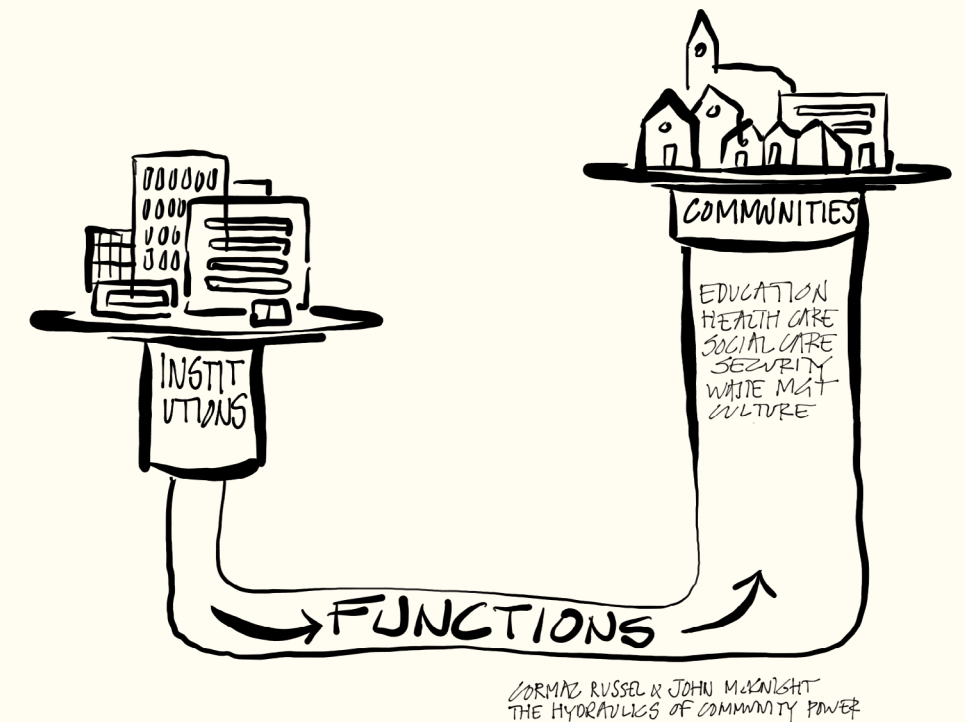 INSTIT
UTIONS
COMMUNITIES
EDUCATION
HEALTH CARE
SOCIAL CARE
SECURITY
WASTE MGT
CULTURE
FUNCTIONS
CORMAC RUSSEL & JOHN McKNIGHT
THE HYDRAULICS OF COMMUNITY POWER